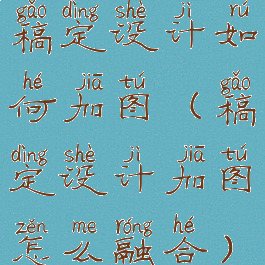 gǎo dìng shè jì rú
稿定设计如
hé jiā tú gǎo
何加图（稿
dìng shè jì jiā tú
定设计加图
zěn me róng hé
怎么融合）